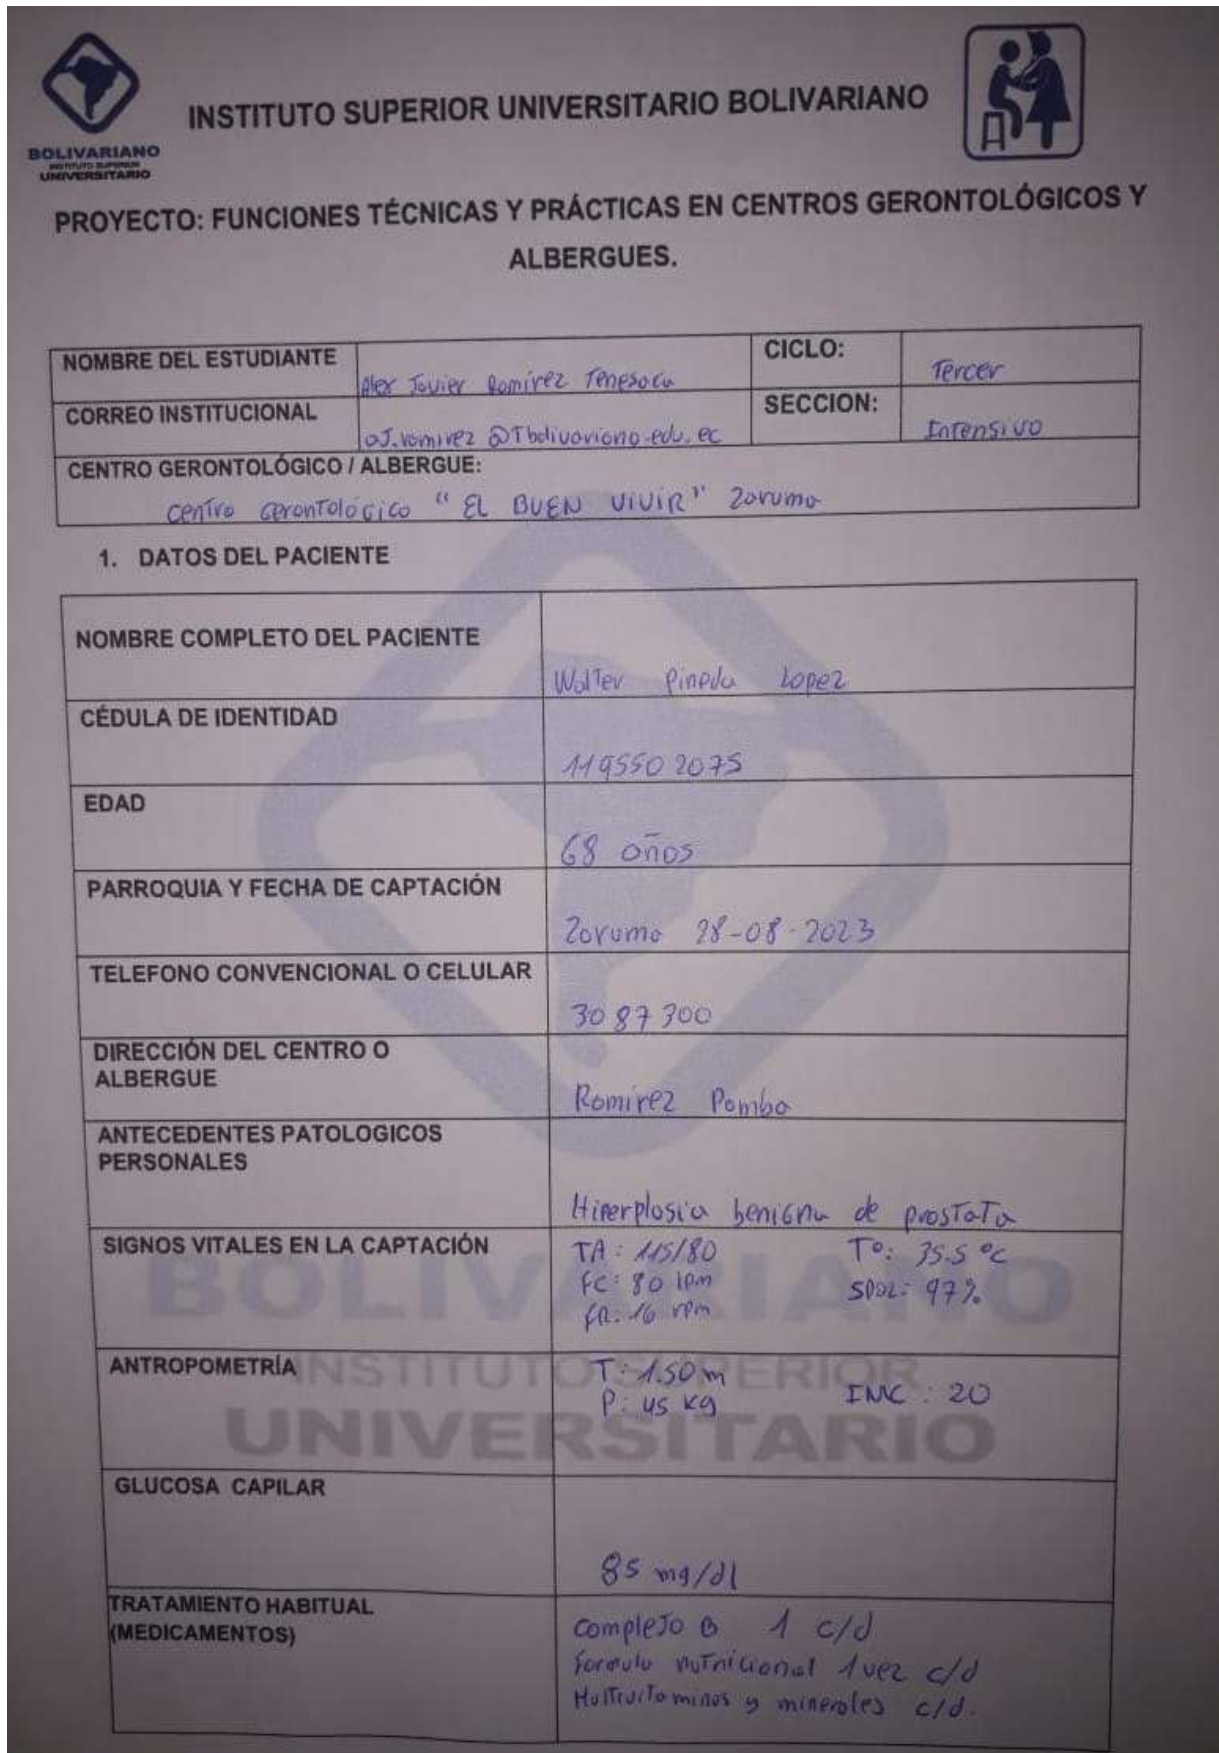 BOLIVARIANO
INSTITUTO SUPERIOR
UNIVERSITARIO
INSTITUTO SUPERIOR UNIVERSITARIO BOLIVARIANO
PROYECTO: FUNCIONES TÉCNICAS Y PRÁCTICAS EN CENTROS GERONTOLÓGICOS Y
ALBERGUES.
NOMBRE DEL ESTUDIANTE
Alex Javier Ramírez Tenesaca
CICLO:
Tercer
CORREO INSTITUCIONAL
aJ.ramirez @Tbolivariano.edu.ec
SECCION:
Intensivo
CENTRO GERONTOLÓGICO / ALBERGUE:
centro Gerontológico "EL BUEN VIVIR" Zaruma
1. DATOS DEL PACIENTE
NOMBRE COMPLETO DEL PACIENTE
Walter Pineda Lopez
CÉDULA DE IDENTIDAD
1195502075
EDAD
68 años
PARROQUIA Y FECHA DE CAPTACIÓN
Zaruma 28-08-2023
TELEFONO CONVENCIONAL O CELULAR
3087300
DIRECCIÓN DEL CENTRO O
ALBERGUE
Ramirez Pamba
ANTECEDENTES PATOLOGICOS
PERSONALES
Hiperplasia benigna de prostata
SIGNOS VITALES EN LA CAPTACIÓN
TA: 115/80 T°: 35.5 °C
FC: 80 lpm SPO2: 97%
FR: 16 rpm
ANTROPOMETRÍA
T: 1.50 m
P: 45 kg IMC: 20
GLUCOSA CAPILAR
85 mg/dl
TRATAMIENTO HABITUAL
(MEDICAMENTOS)
complejo B 1 c/d
formula nutricional 1 vez c/d
Multivitaminas y minerales c/d.
BOLIVARIANO
INSTITUTO SUPERIOR
UNIVERSITARIO